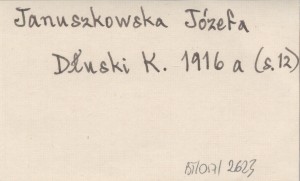 Januszkowska Józefa
Dłuski K. 1916 a (s.12)
2623